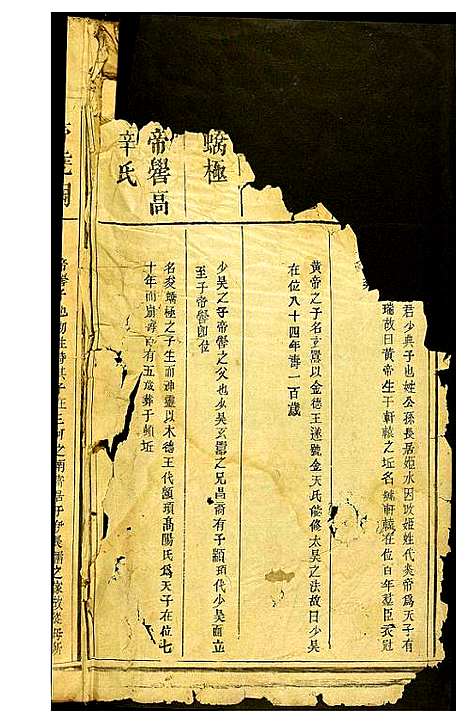 君少典子也姓公孫長居姬水因改姬姓代炎帝爲天子有
瑞故曰黃帝生于軒轅之坵名軒轅在位百年羣臣衣冠
黃帝之子名玄囂以金德王遂號金天氏能修太昊之法故曰少昊
在位八十四年壽一百歲
蟜極
少昊之子帝嚳之父也少昊玄囂之兄昌意有子顓頊代少昊而立
至子帝嚳卽位
帝嚳高
辛氏
名夋蟜極之子生而神靈以木德王代顓頊高陽氏爲天子在位七
十年而崩壽百有五歲葬于頓坵
帝嚳子也
三河之南